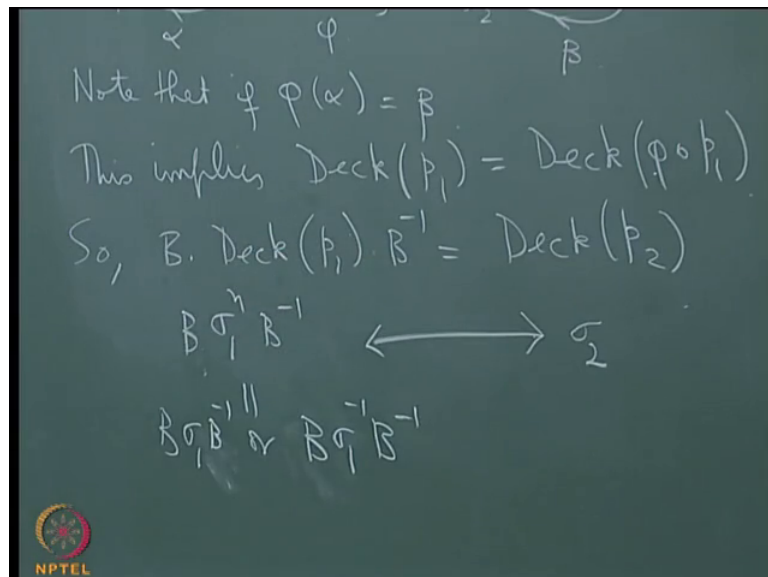 α φ 2 β
Note that if φ(α) = β
This implies Deck(p₁) = Deck(φ∘p₁)
So, B. Deck(p₁) B⁻¹ = Deck(p₂)
B σ₁ⁿ B⁻¹ ⟷ σ₂
||
B σ₁ B⁻¹ or B σ₁⁻¹ B⁻¹
NPTEL